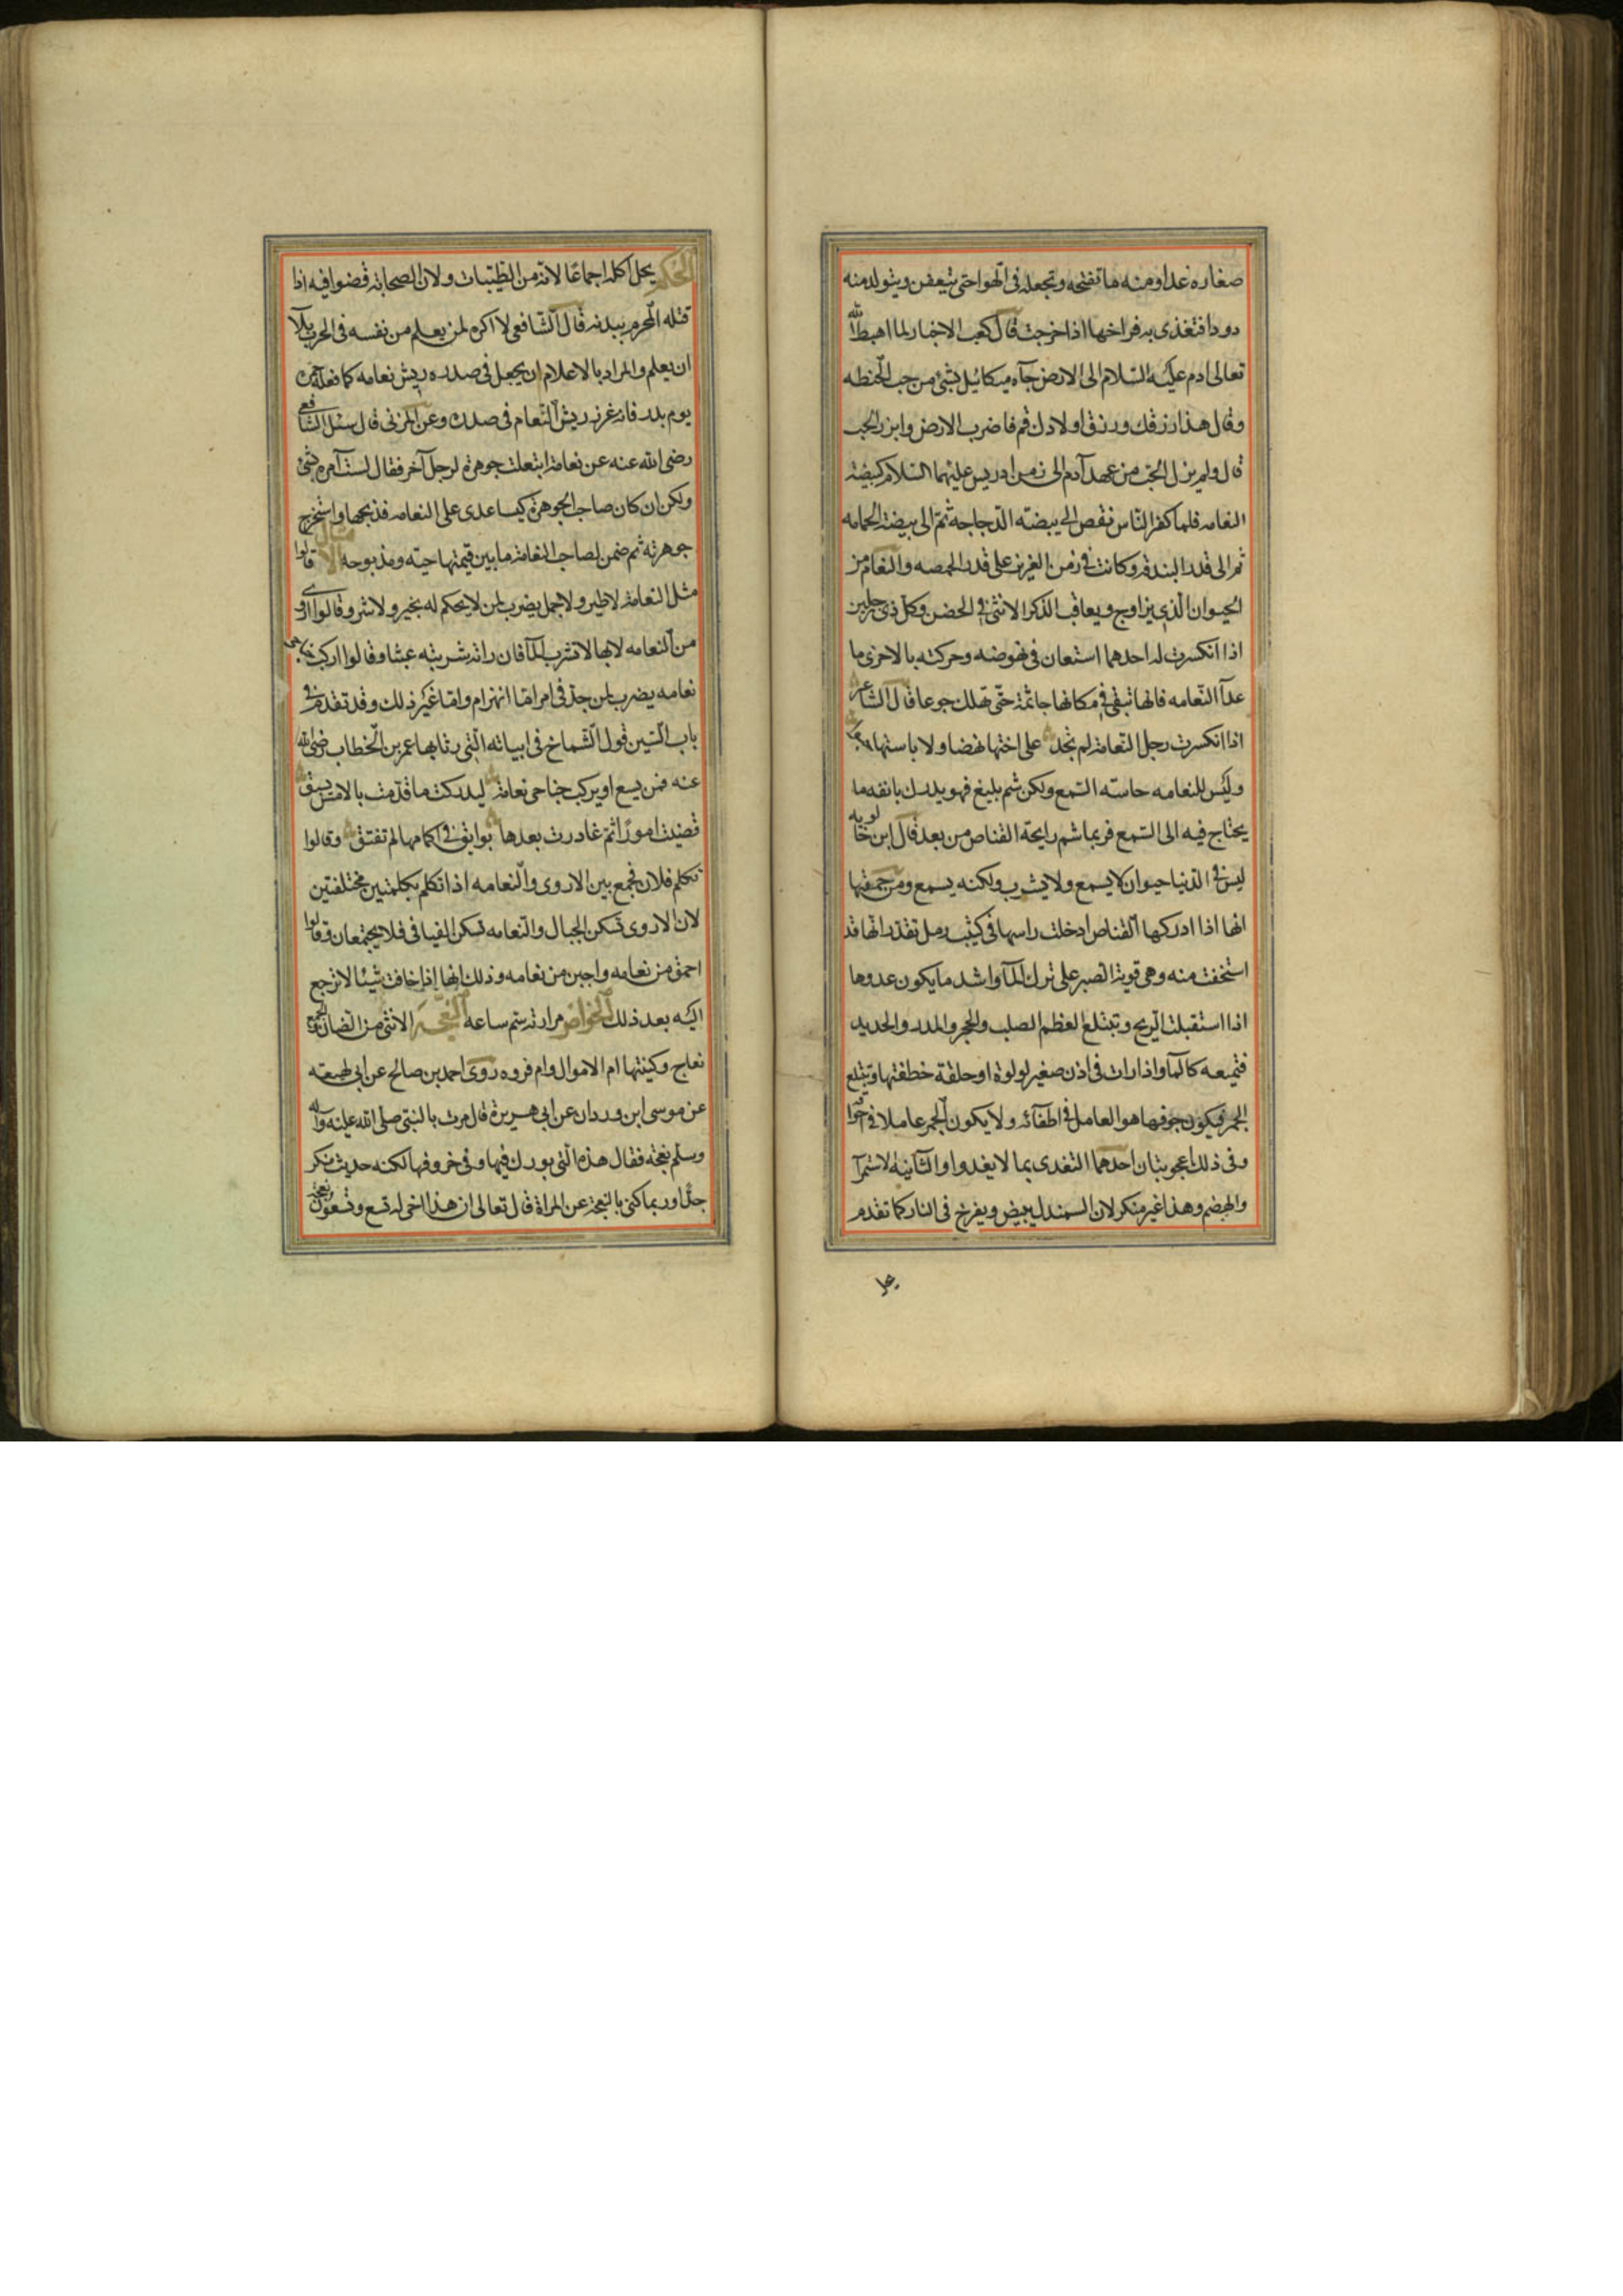 صغاره غدا ومنه ما تفتحه وتجعله فى الهوا حتى يتعفن ويتولد منه
دودا فتغذى به فراخها اذا خرجت قال كعب الاخبار لما اهبط الله
تعالى ادم عليه السلام الى الارض جآه ميكائيل بشئ من حب الحنطه
وقال هذا رزقك ورزق اولادك قم فاضرب الارض وابذر الحب
قال ولم يزل الحب من عهد آدم الى زمن ادريس عليهما السلام كبيضة
النعامه فلما كفر الناس نقص الى بيضته الدجاجة ثم الى بيضة الحمامه
ثم الى قدر البندقه وكانت فى زمن العزيز على قدر الحمصه والنعام من
الحيوان الذى يزاوج ويعاقب الذكر الانثى فى الحضن وكل ذى رجلين
اذا انكسرت له احدهما استعان فى نهوضه وحركته بالاخرى ما
عدآ النعامه فانها تبقى فى مكانها جاثمة حتى تهلك جوعا قال الشاعر
اذا انكسرت رجل النعامة لم تجد على اختها نهضا ولا باستها
وليس للنعامه حاسته السمع ولكن شم بليغ فهو يدرك بانفه ما
يحتاج فيه الى السمع فربما شم رايحة القناص من بعد قال ابن خالويه
ليس فى الدنيا حيوان لا يسمع ولا يشرب ولكنه يسمع ومن حمقها
انها اذا ادركها القناص ادخلت راسها فى كثيب رمل تقدر انها قد
استخفت منه وهى قوية الصبر على ترك المآ واشد ما يكون عدوها
اذا استقبلت الريح وتبتلع العظم الصلب والحجر والمدر والحديد
فتميعه كالمآ واذا رات فى اذن صغير لولوة او حلقة خطفتها وتبتلع
الجمر فيكون جوفها هو العامل فى اطفآئه ولا يكون الجمر عاملا فى
وفى ذلك اعجوبتان احدهما التغدى بما لا يغدوا والثانية لاستمرآ
والهضم وهذا غير منكر لان السمندل يبيض ويفرخ فى النار كما تقدم
الحكم يحل اكله اجماعا لانه من الطيبات ولان الصحابة قضوا فيه اذا
قتله المحرم ببدنه قال الشافعى لا اكره لمن يعلم من نفسه فى الحرب بلآ
ان يعلم والمراد بالاعلام ان يجعل فى صدره ريش نعامه كما فعله حمزه
يوم بدر فانه غرز ريش النعام فى صدره وعن المزنى قال سئل الشافعى
رضى الله عنه عن نعامة ابتعلت جوهرة لرجل آخر فقال لست آمره بشئ
ولكن ان كان صاحب الجوهرة كيسا عدى على النعامه فذبحها واستخرج
جوهرته ثم ضمن لصاحب النعامة ما بين قيمتها حية ومذبوحه الامثال قالوا
مثل النعامة لا طير ولا جمل يضرب لمن لا يحكم له بخير ولا شر وقالوا اروى
من النعامه لانها لا تشرب المآ فان راته شربته عبثا وقالوا اركب جناحى
نعامه يضرب لمن جد فى امر اما انهزام واما غير ذلك وقد تقدم فى
باب السين قول الشماخ فى ابياته التى رثا بها عمر بن الخطاب رضى الله
عنه فمن يسع او يركب جناحى نعامة ليدركت ما قدمت بالامس يسبق
قضيت امورا ثم غادرت بعدها بوايق فى اكمامها لم تفتق وقالوا
تكلم فلان فجمع بين الاروى والنعامه اذا تكلم بكلمتين مختلفتين
لان الاروى تسكن الجبال والنعامه تسكن الفيافى فلا يجتمعان وقالوا
احمق من نعامه واجبن من نعامه وذلك انها اذا خافت شيئا لا ترجع
اليه بعد ذلك الخواص مرارته سم ساعه النعجة الانثى من الضان والجمع
نعاج وكنيتها ام الاموال وام فروه روى احمد بن صالح عن ابى لهيعته
عن موسى ابن وردان عن ابى هريرة قال مرت بالنبى صلى الله عليه وآله
وسلم نعجة فقال هذه التى بورك فيها وفى خروفها لكنه حديث منكر
جدا وربما كنى بالنعجة عن المراة قال تعالى ان هذا اخى له تسع وتسعون نعجة